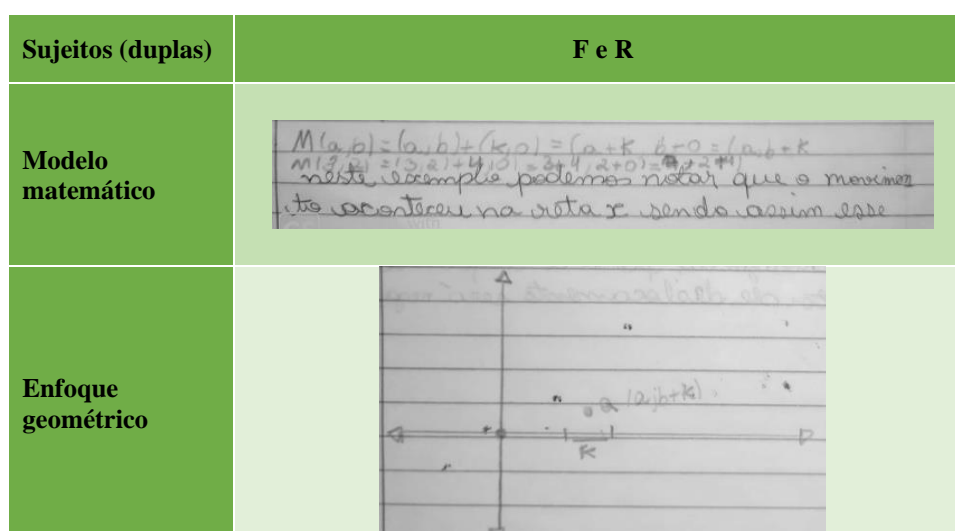 Sujeitos (duplas)
F e R
Modelo
matemático
M(a,b)=(a,b)+(k,0)=(a+k, b+0=(a,b+k
M(3,2)=(3,2)+4,0)=3+4,2+0)=
neste exemplo podemos notar que o movimen
to aconteceu na reta x sendo assim esse
Enfoque
geométrico
a (a,b+k)
k